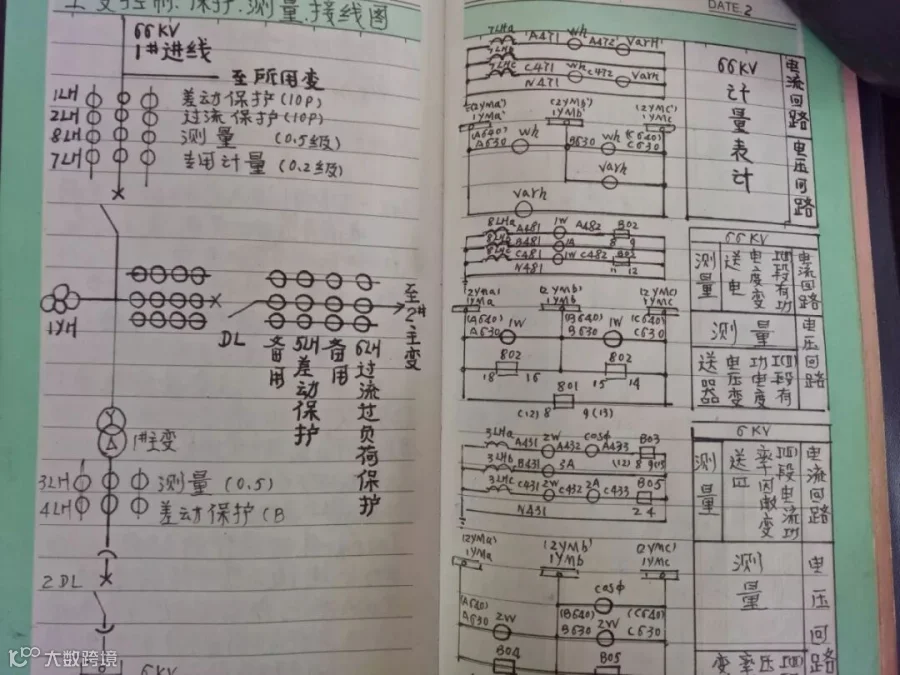 主变控制.保护.测量.接线图
66KV
1#进线
至所用变
1LH 差动保护(10P)
2LH 过流保护(10P)
8LH 测量(0.5级)
7LH 专用计量(0.2级)
1YH
DL
备用
5LH差动保护
备用
6LH过流过负荷保护
至2#主变
1#主变
3LH 测量(0.5)
4LH 差动保护(B
2DL
6KV
DATE 2
7LHa A471 wh A472 varh
7LHb
7LHc C471 wh C472 varh
N471
66KV
计量表计
电流回路
电压回路
(2YMa) (2YMb) (2YMc)
1YMa 1YMb 1YMc
(A640) (C640)
A630 wh B630 wh C630
varh
varh
8LHa A481 1W A482 B02
8LHb B481 1A 8 9
8LHc C481 1W C482 B02
N481 11 12
66KV
测量
送电
电度变
I(II)段有功
电流回路
(2YMa) (2YMb) (2YMc)
1YMa 1YMb 1YMc
(A640) (B640) (C640)
A630 1W B630 1W C630
802 802
18 16 15 14
801
(12) 8 9 (13)
测量
电压回路
送电功I(II)
器压电段
变度有
3LHa A431 2W A432 cosφ A433 B03
3LHb B431 3A (12) 8
3LHc C431 2W C432 2A C433 B05
N431 2 4
6KV
测量
电流回路
(2YMa) (2YMb) (2YMc)
1YMa 1YMb 1YMc
cosφ
(A640) (B640) (C640)
A630 2W B630 2W C630
B04 B05
测量
电压回路
变率压I(II)
大数跨境